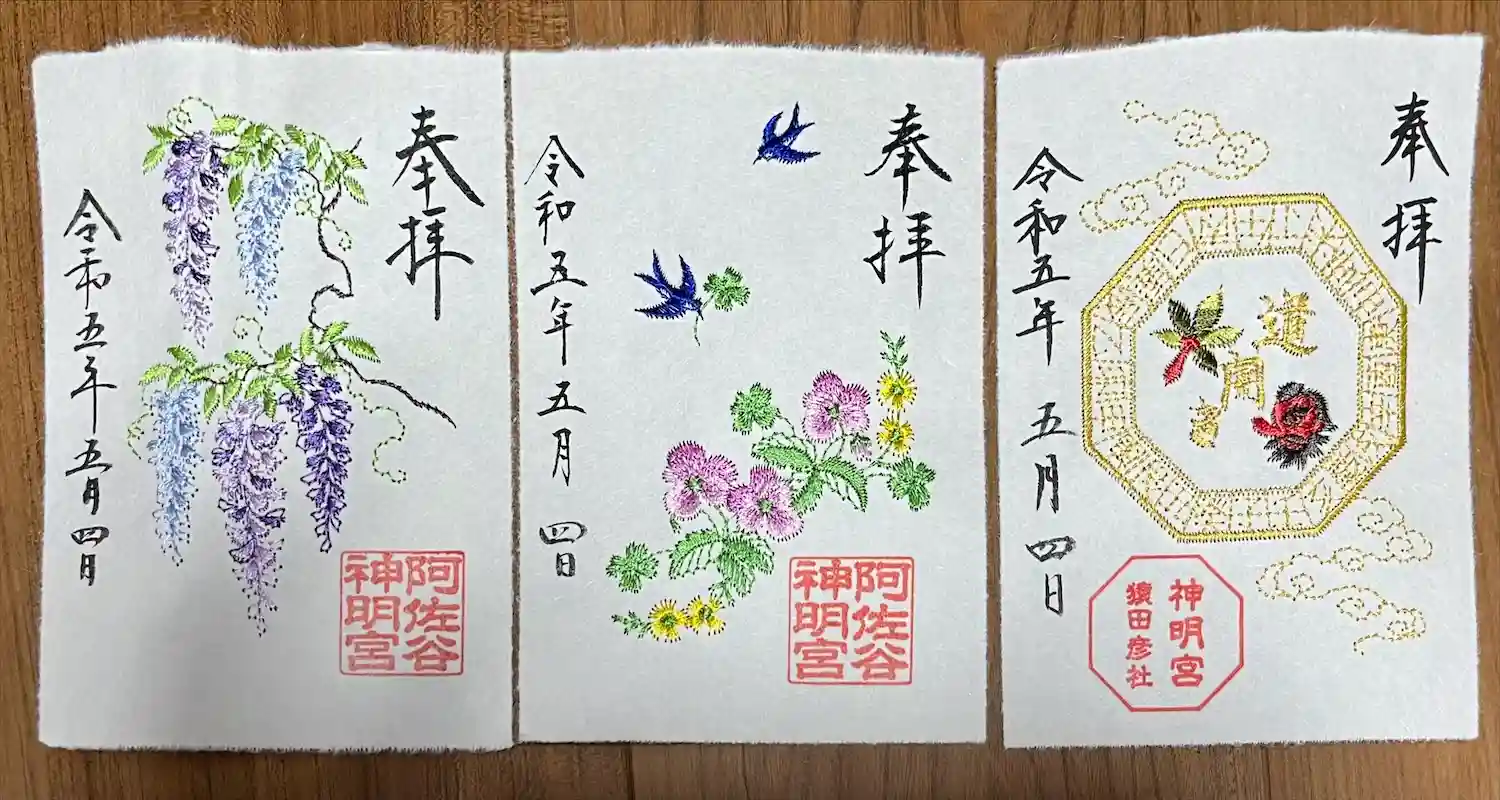 奉拝
令和五年五月四日
阿佐谷
神明宮
奉拝
令和五年五月四日
阿佐谷
神明宮
奉拝
道
開
令和五年五月四日
神明宮
猿田彦社